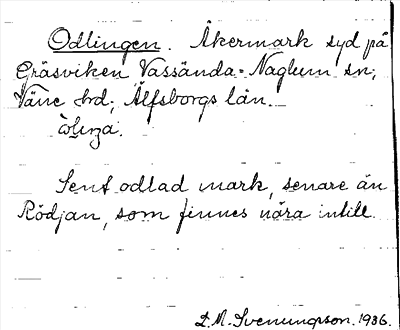 Odlingen. Åkermark syd på
Gräsviken Vassända-Naglum sn,
Väne hd, Älfsborgs län.
Sent odlad mark, senare än
Rödjan, som finnes nära intill.
L. M. Svenungsson. 1936.